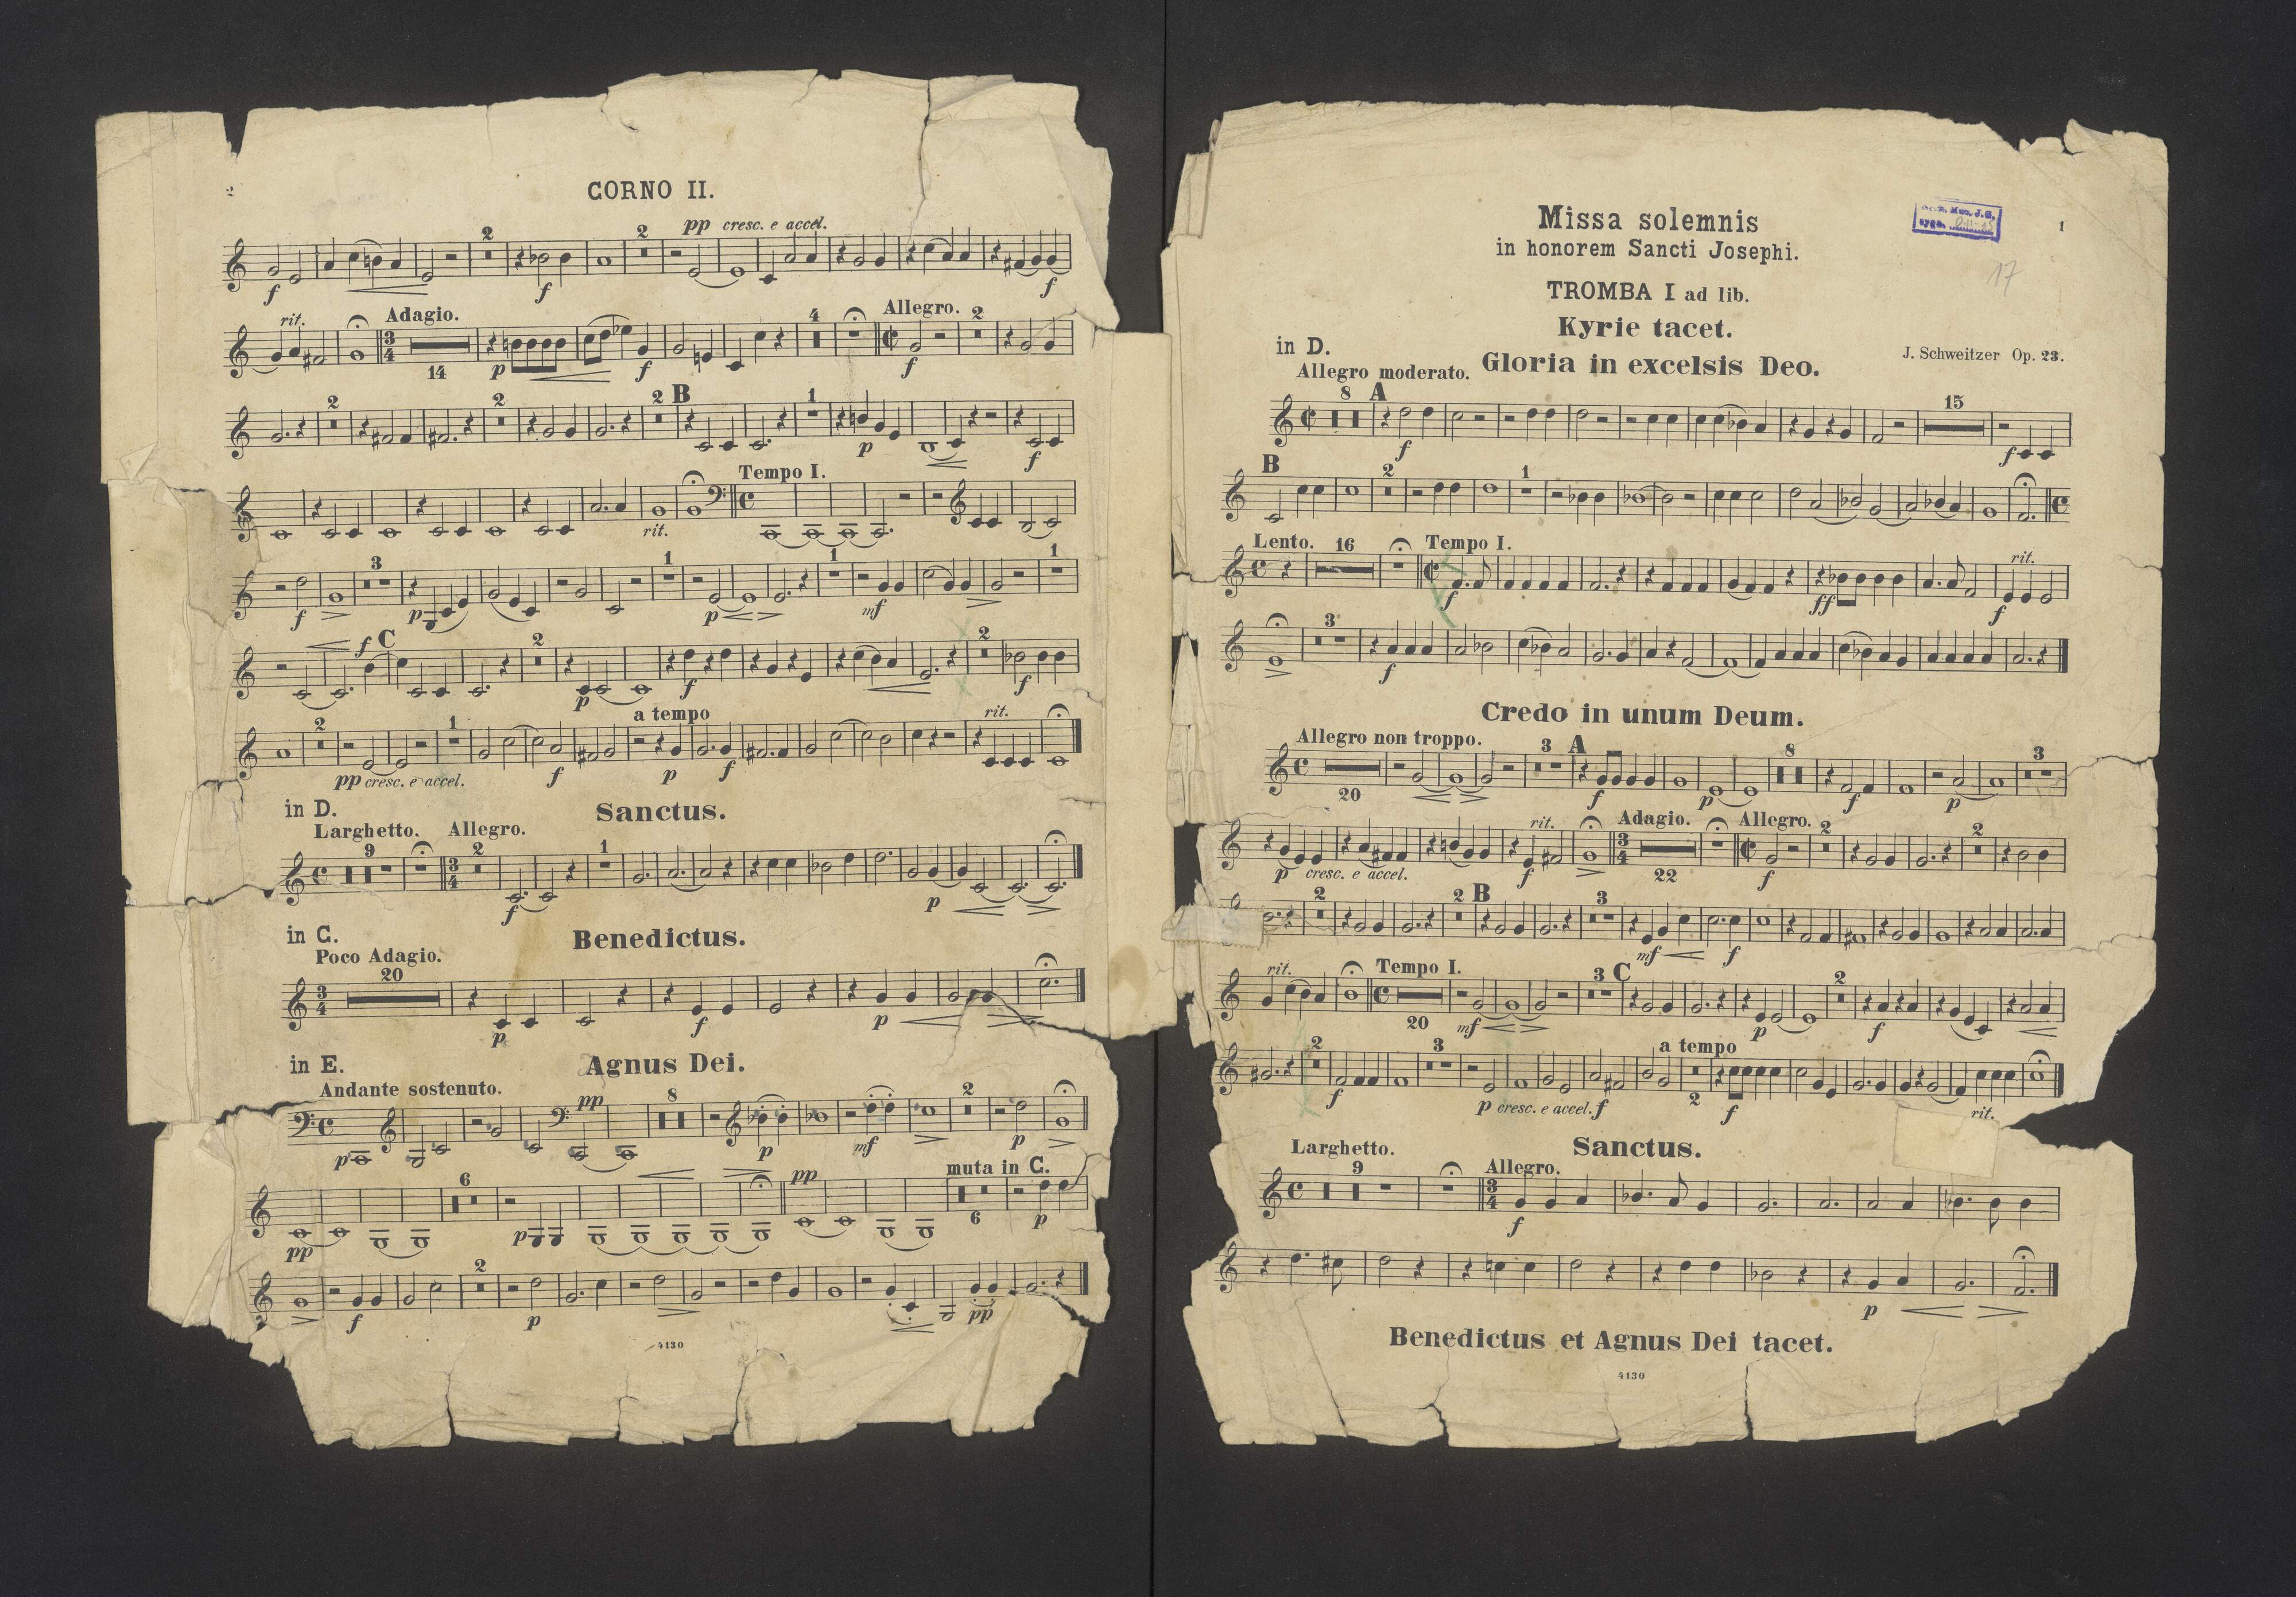 2
CORNO II.
pp cresc. e accel.
2 2
f f f
rit. Adagio. 4 Allegro. 2
14 p f f
2 2 2 B 1
p f
Tempo I.
rit.
3 1 1 1
f p p mf
f C 2 2
p f f
2 1 a tempo rit.
pp cresc. e accel. f p f
in D. Sanctus.
Larghetto. Allegro.
9 2 1
f p
in C. Benedictus.
Poco Adagio.
20
p f p
in E. Agnus Dei.
Andante sostenuto.
pp 8 2
p p mf p
6 pp muta in C.
pp p 6 p
2
f p pp
4130
1
Missa solemnis
in honorem Sancti Josephi.
17
TROMBA I ad lib.
Kyrie tacet.
in D.
J. Schweitzer Op. 23.
Allegro moderato. Gloria in excelsis Deo.
8 A 15
f f
B 2 1
Lento. 16 Tempo I. rit.
f ff f
3
f
Credo in unum Deum.
Allegro non troppo. 3 A 8 3
20 f p f p
rit. Adagio. Allegro. 2 2
p cresc. e accel. f 22 f
2 2 B 3
mf f
rit. Tempo I. 3 C 2
20 mf p f
2 3 a tempo
f p cresc. e accel. f 2 f rit.
Sanctus.
Larghetto. 9 Allegro.
f
p
Benedictus et Agnus Dei tacet.
4130